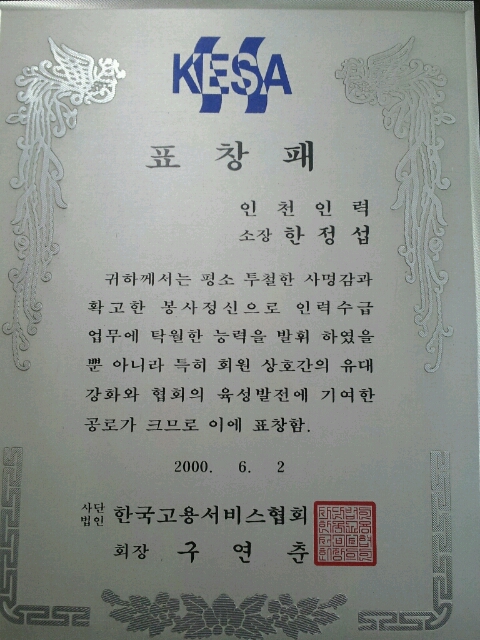 KESA
표 창 패
인 천 인 력
소장 한 정 섭
귀하께서는 평소 투철한 사명감과
확고한 봉사정신으로 인력수급
업무에 탁월한 능력을 발휘 하였을
뿐 아니라 특히 회원 상호간의 유대
강화와 협회의 육성발전에 기여한
공로가 크므로 이에 표창함.
2000. 6. 2
사단법인 한국고용서비스협회
회장 구 연 춘